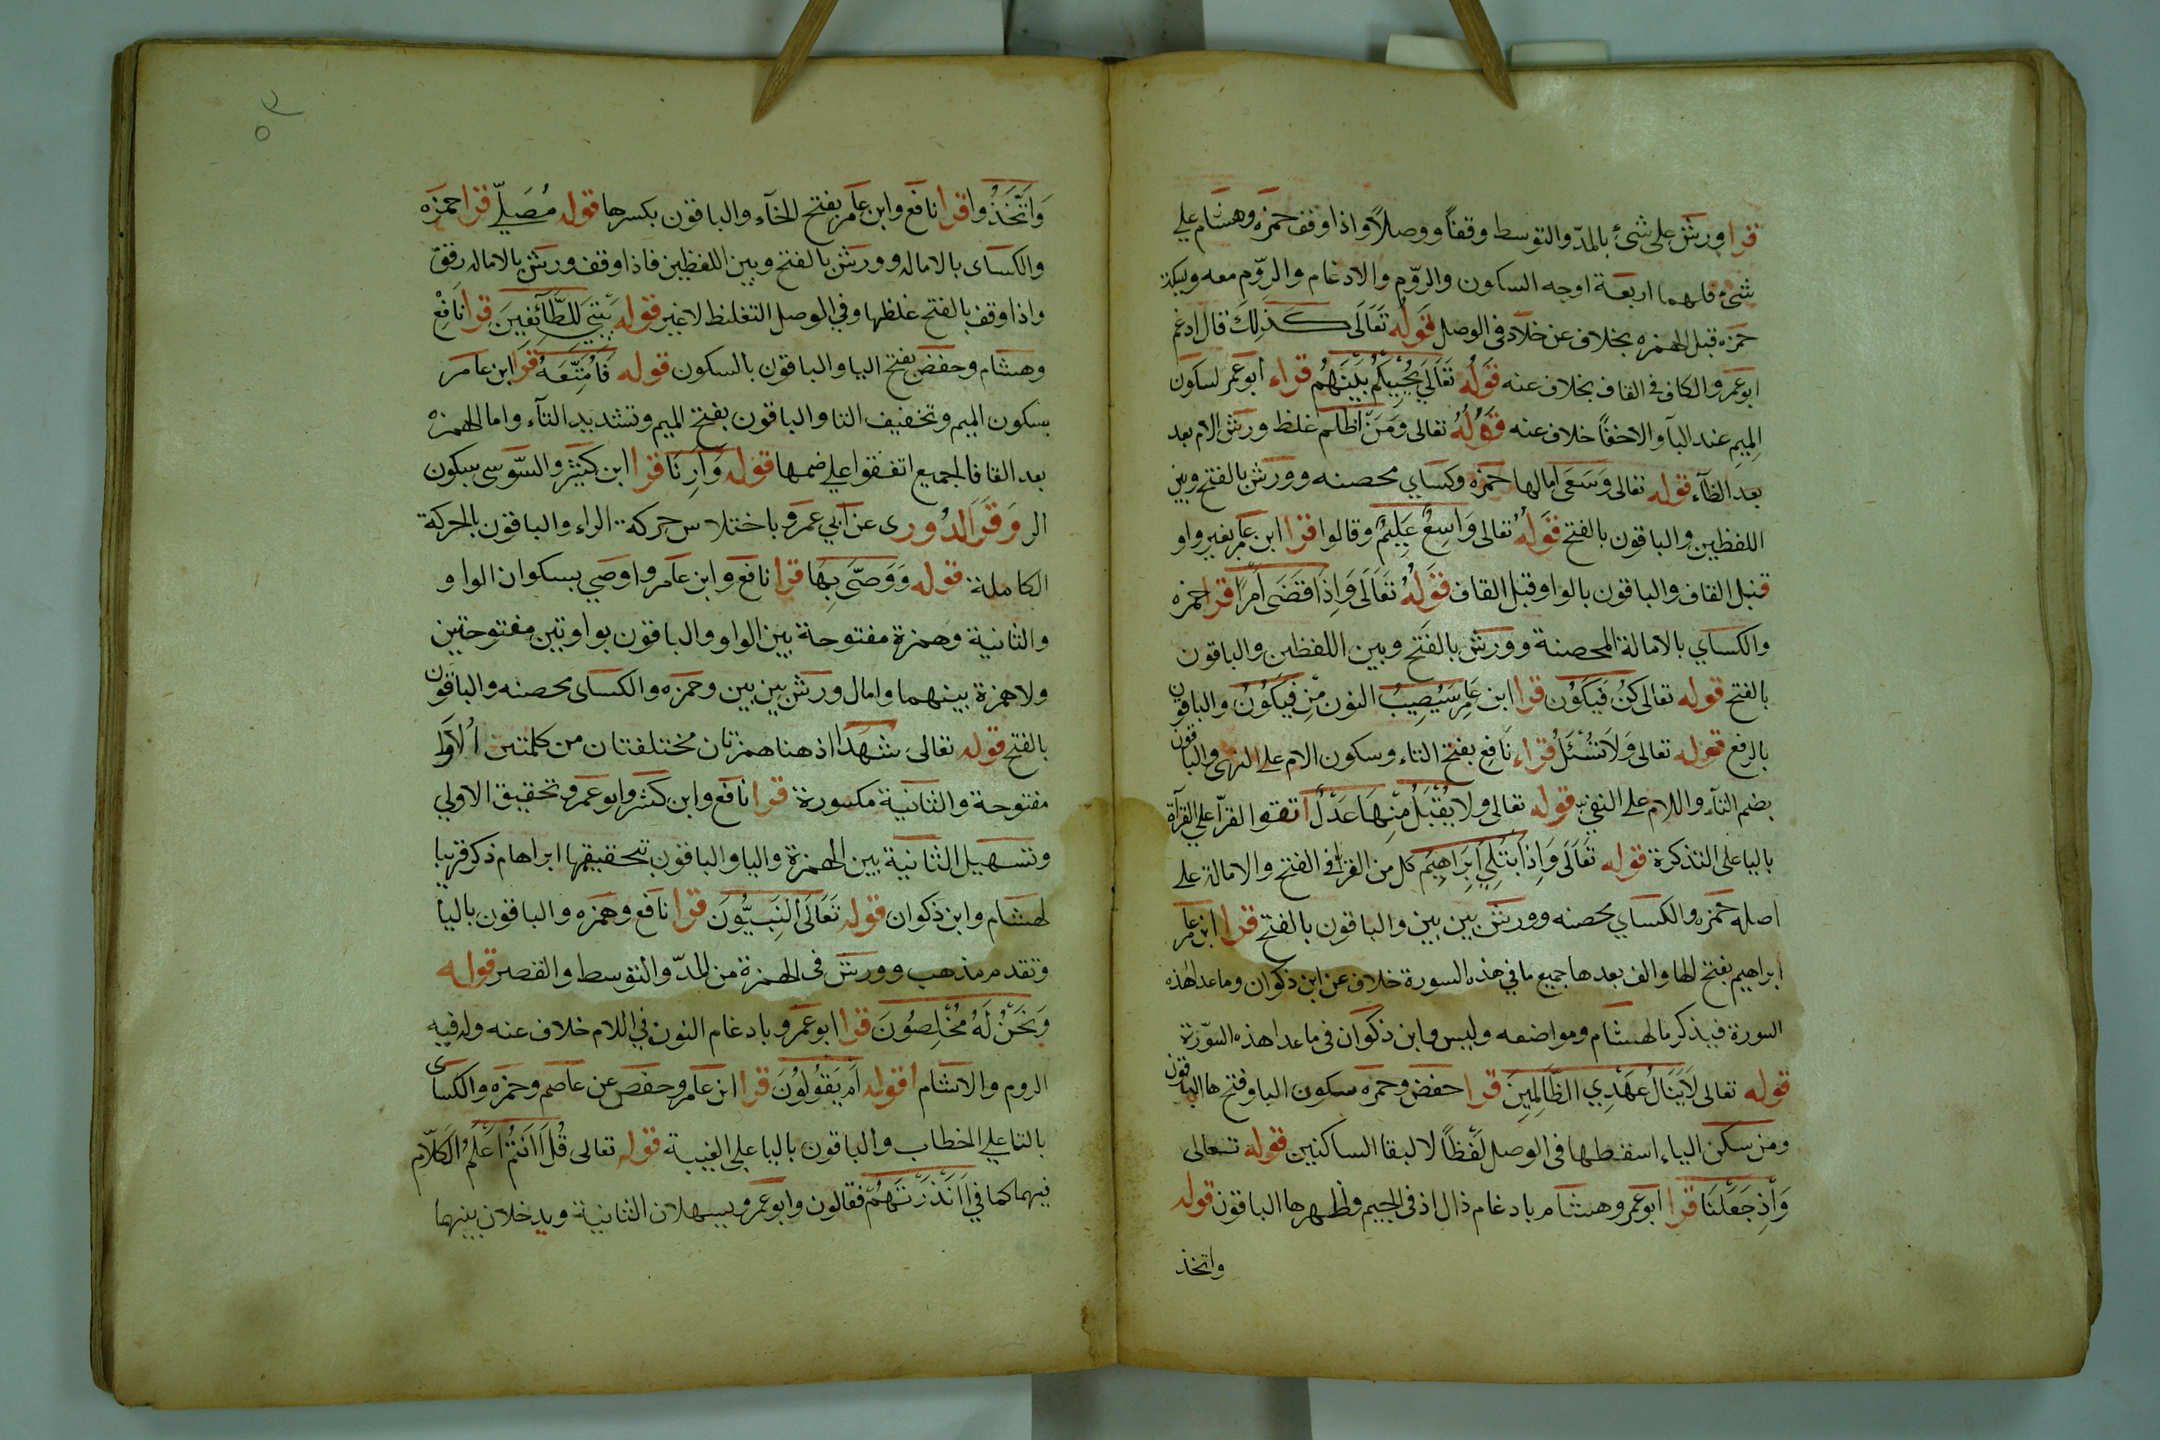 قرا ورش على شئ بالمد والتوسط وقفاً ووصلاً واذا وقف حمزه وهشام على
شئ فلهما اربعة اوجه السكون والروم والادغام والروم معه ويسكت
حمزه قبل الهمزه بخلاف عن خلاد فى الوصل قوله تعالى كذلك قال ادغم
ابو عمرو الكاف فى القاف بخلاف عنه قوله تعالى يحكم بينهم قراء ابو عمر لسكون
الميم عند البآ والاخفاً خلاف عنه قوله تعالى ومن اظلم غلظ ورش الام بعد
بعد الظآء قوله تعالى وسعى امالها حمزه وكساي محصنه وورش بالفتح وبين
اللفظين والباقون بالفتح قوله تعالى واسع عليم وقالوا قرا ابن عامر بغير واو
قبل القاف والباقون بالواو قبل القاف قوله تعالى واذا قضى امرًا قرا حمزه
والكساي بالامالة المحصنة وورش بالفتح وبين اللفظين والباقون
بالفتح قوله تعالى كن فيكون قرا ابن عامر سيصيب النون من فيكون والباقون
بالرفع قوله تعالى ولا تسئل قراء نافع بفتح التاء وسكون الام على النهى والباقون
بضم التآء واللام على النفي قوله تعالى ولا يقبل منها عدل اتفقوا القرآ على القرآة
باليا على التذكرة قوله تعالى واذ ابتلي ابراهيم كل من القرا في الفتح والامالة على
اصله حمزه والكساي محصنه وورش بين بين والباقون بالفتح قرا ابن عامر
ابراهيم بفتح لها والف بعدها جميع ما في هذه السورة خلاف عن ابن ذكوان وما عدا هذه
السورة فيذكر ما لهشام ومواضعه وليس وابن ذكوان فى ماعدا هذه السّورة
قوله تعالى لا ينال عهدي الظالمين قرا حفص وحمزه سكون اليا وفتحها الباقون
ومن سكن الياء اسقطها فى الوصل لفظاً لالبقا الساكنين قوله تعالى
واذ جعلنا قرا ابو عمر وهشام بادغام ذال اذ فى الجيم وظهرها الباقون قوله
واتخذ
واتخذوا قرا نافع وابن عامر بفتح الخآء والباقون بكسرها قوله مصلّى قرا حمزه
والكساى بالاماله وورش بالفتح وبين اللفظين فاذا وقف ورش بالاماله رقق
واذا وقف بالفتح غلظها وفي الوصل التغليظ لا غير قوله بيتي للطآئفين قرا نافع
وهشام وحفص بفتح اليا والباقون بالسكون قوله فامتعه قرا ابن عامر
بسكون الميم وتخفيف التا والباقون بفتح الميم وتشديد التآء واما الهمزه
بعد القا فالجميع اتفقوا على ضمها قوله وارنا قرا ابن كثير والسّوسى بسكون
الر وقرا الدوري عن ابي عمرو باختلاس حركة الراء والباقون بالحركة
الكاملة قوله ووصّى بها قرا نافع وابن عامر واوصي بسكوان الواو
والثانية وهمزة مفتوحة بين الواو والباقون بواوتين مفتوحتين
ولا همزة بينهما وامال ورش بين بين وحمزه والكساى محصنه والباقون
بالفتح قوله تعالى شهدا اذ هنا همزتان مختلفتان من كلمتين الاوا
مفتوحة والثانية مكسورة قرا نافع وابن كثير وابو عمرو تحقيق الاولي
وتسهيل الثانية بين الهمزة واليا والباقون بتحقيقها ابراهام ذكر قريبا
لهشام وابن ذكوان قوله تعالى النبيّون قرا نافع وهمزه والباقون باليا
وتقدم مذهب وورش فى الهمزة من المدّ والتوسط والقصر قوله
ونحن له مخلصون قرا ابو عمرو بادغام النون في اللام خلاف عنه وله فيه
الروم والاشمام قوله ام يقولون قرا ابن عامر وحفص عن عاصم وحمزه والكساى
بالتا على الخطاب والباقون باليا على الغيبة قوله تعالى قل اانتم اعلم الكلام
فيهما كما في اانذرتهم فقالون وابو عمرو يسهلان الثانية ويدخلان بينهما